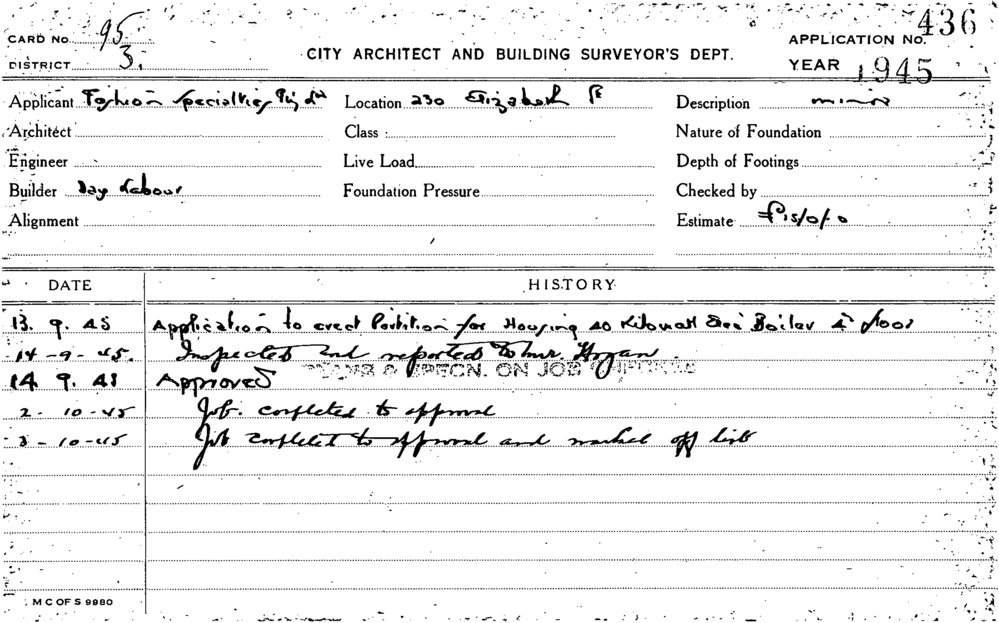 CARD No 95
DISTRICT 3.
CITY ARCHITECT AND BUILDING SURVEYOR'S DEPT.
APPLICATION No. 436
YEAR 1945
Applicant Fashion Specialties Pty Ltd Location 230 Elizabeth St Description minor
Architect Class : Nature of Foundation
Engineer Live Load Depth of Footings
Builder Day Labour Foundation Pressure Checked by
Alignment Estimate £15/0/-0
DATE HISTORY
13. 9. 45 Application to erect Partition for Housing 40 Kilowatt Boiler 4th floor
14-9-45. Inspected and reported to Mr Hogan.
PLANS & SPECN. ON JOB
14. 9. 45 Approved
2-10-45 Job. completed to approval
3-10-45 Job complete to approval and marked off list
M C OF S 9980